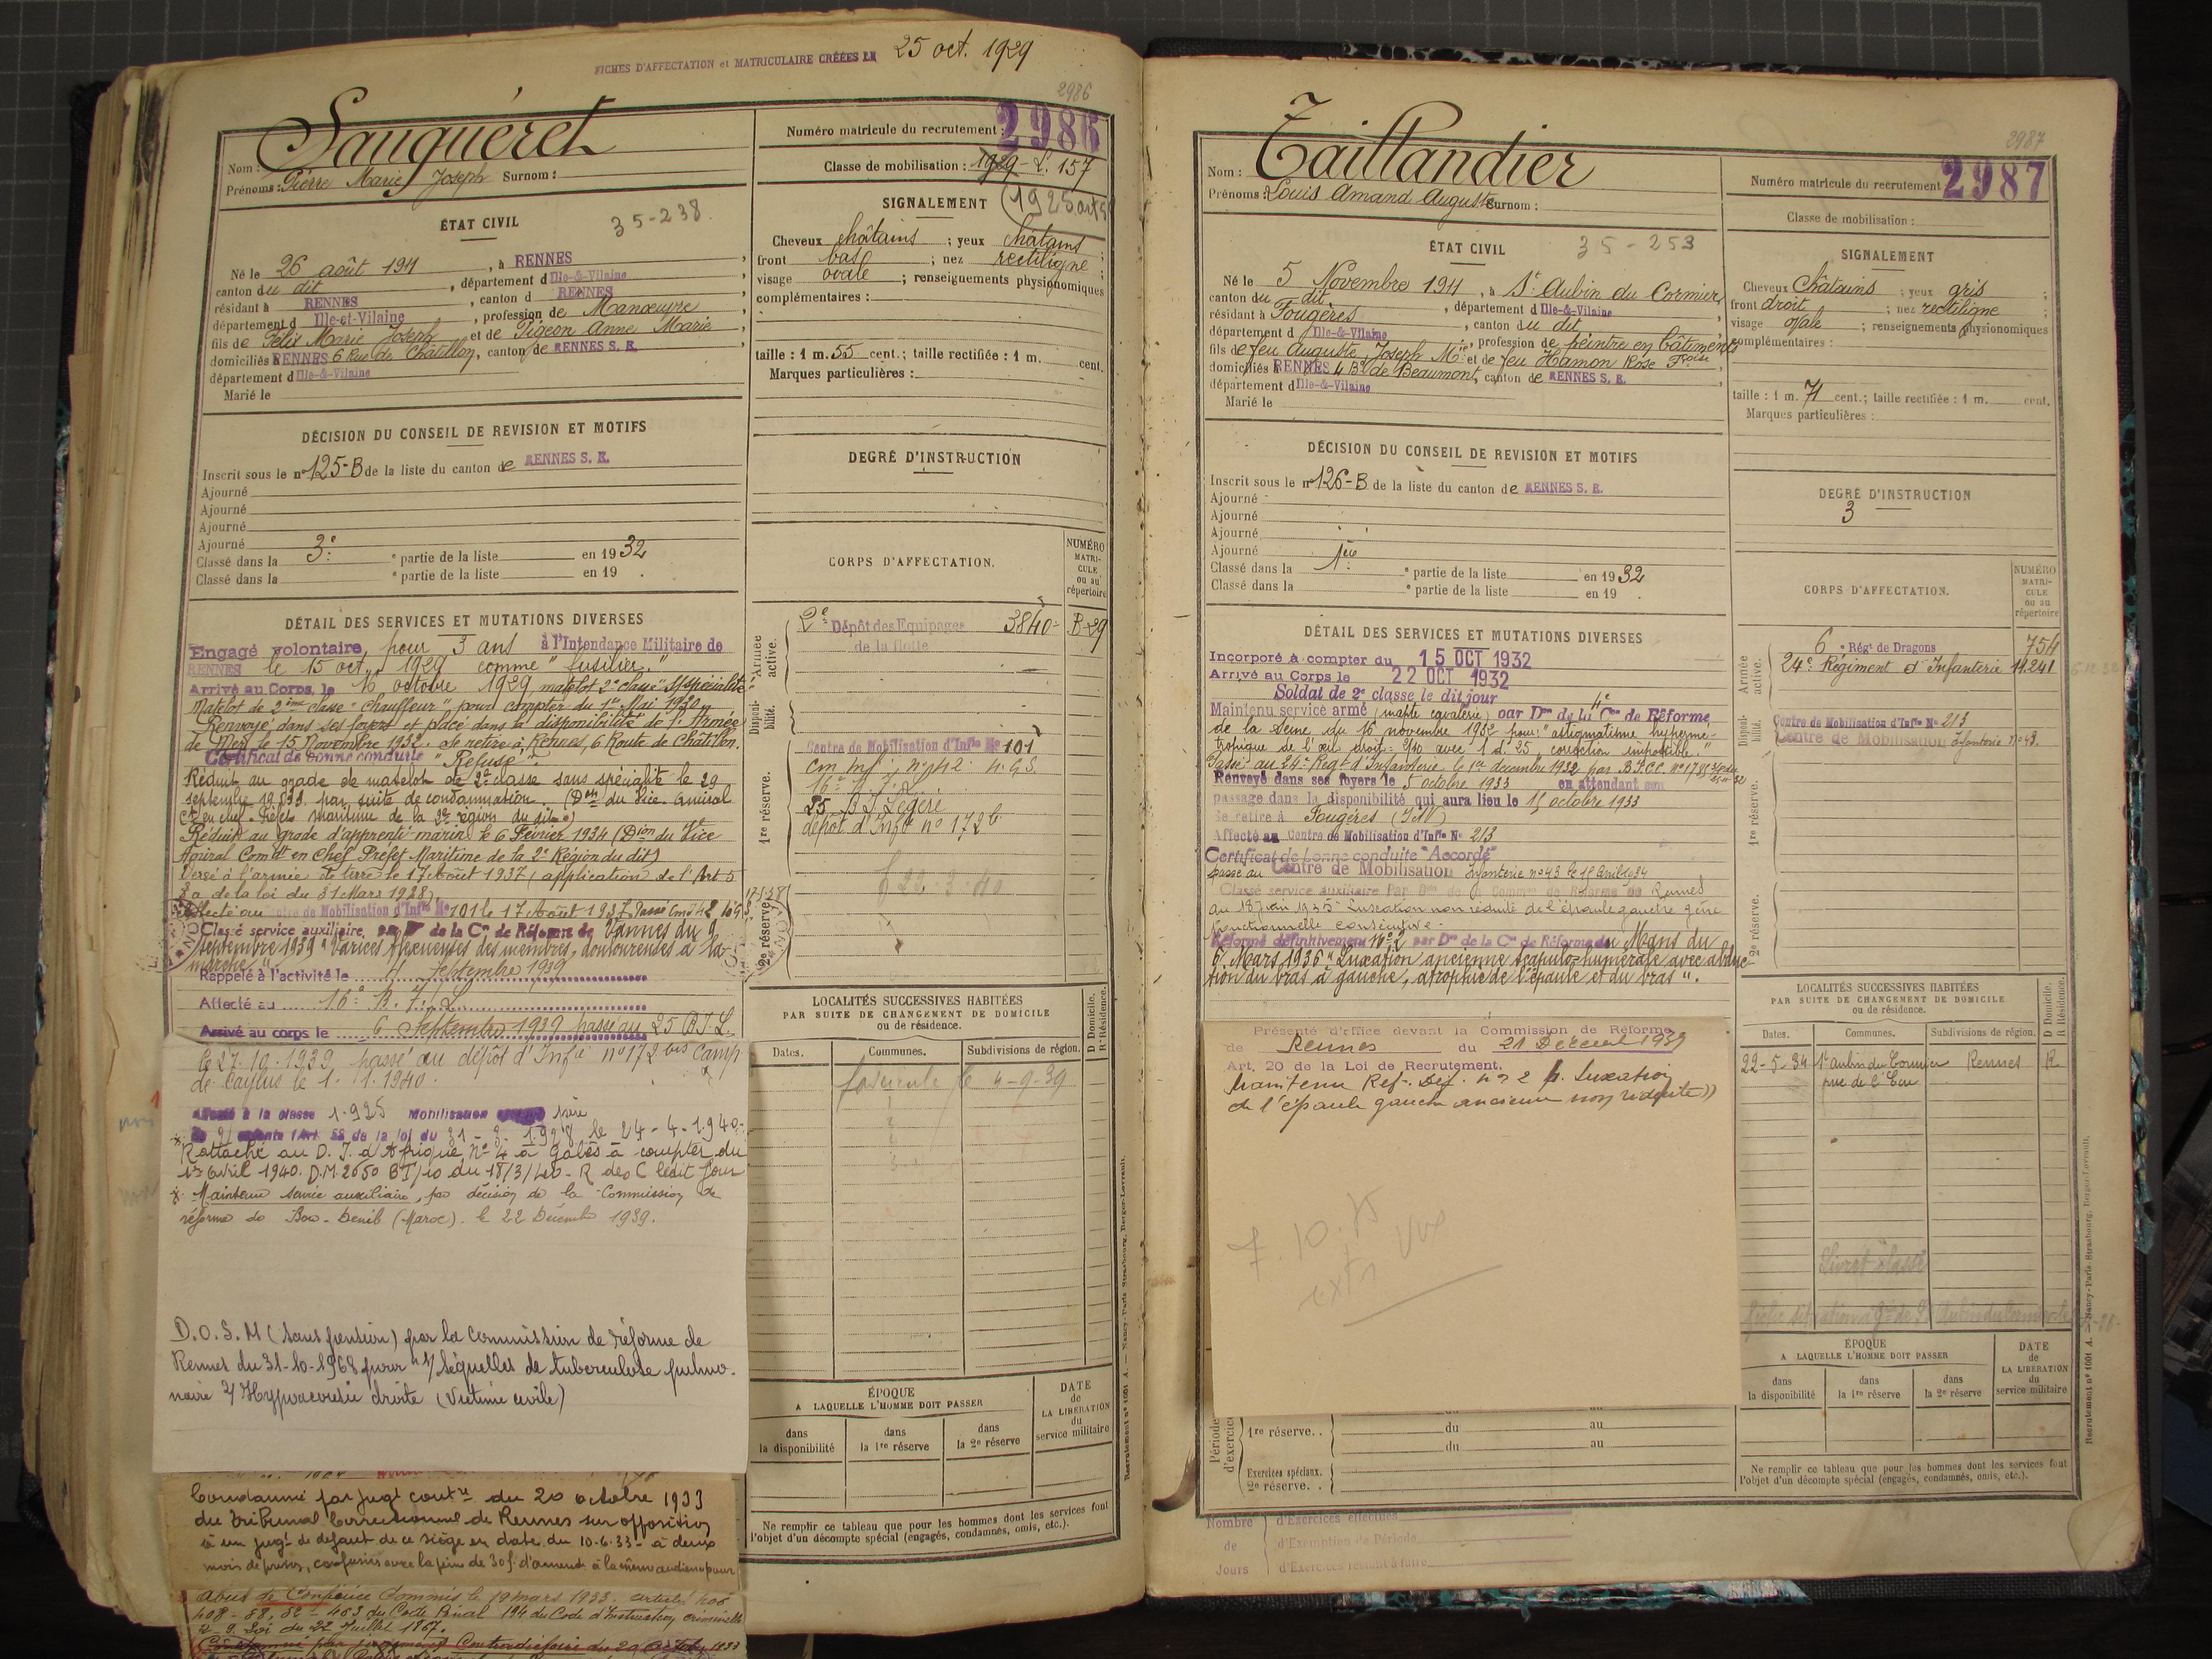 FICHES D'AFFECTATION et MATRICULAIRE CRÉÉES LE 25 oct. 1929
2986
Nom : Sauquéret
Prénoms : Pierre Marie Joseph Surnom :
Numéro matricule du recrutement : 2986
Classe de mobilisation : 1929 - L. 157
(1925 art 5
ÉTAT CIVIL
35-238.
Né le 26 août 1911, à RENNES,
canton du dit, département d Ille-&-Vilaine
résidant à RENNES, canton d RENNES
département d Ille-et-Vilaine, profession de Manœuvre
fils de Félix Marie Joseph et de Pigeon Anne Marie,
domiciliés RENNES 6 Rue de Châtillon, canton de RENNES S. E.
département d Ille-&-Vilaine
Marié le
SIGNALEMENT
Cheveux châtains ; yeux châtains ;
front bas ; nez rectiligne ;
visage ovale ; renseignements physionomiques
complémentaires :
taille : 1 m. 55 cent.; taille rectifiée : 1 m. cent.
Marques particulières :
DÉCISION DU CONSEIL DE REVISION ET MOTIFS
Inscrit sous le n° 125-B de la liste du canton de RENNES S. E.
Ajourné
Ajourné
Ajourné
Ajourné
Classé dans la 3e ° partie de la liste en 1932
Classé dans la ° partie de la liste en 19 .
DEGRÉ D'INSTRUCTION
DÉTAIL DES SERVICES ET MUTATIONS DIVERSES
Engagé volontaire pour 3 ans à l'Intendance Militaire de
RENNES le 15 oct. 1929 comme "fusilier."
Arrivé au Corps, le 16 octobre 1929 matelot 2e classe S/spécialité
Matelot de 2ème classe "Chauffeur" pour compter du 1er Mai 1930
Renvoyé dans ses foyers et placé dans la disponibilité de l'Armée
de Mer le 15 Novembre 1932. Se retire à Rennes, 6 Route de Châtillon.
Certificat de bonne conduite "Refusé".
Réduit au grade de matelot de 2e classe sans spécialité le 29
septembre 1933 par suite de condamnation. (Don du Vice Amiral
Ct en chef Préfet Maritime de la 2e région du dit)
Réduit au grade d'apprenti marin le 6 Février 1934 (Dion du Vice
Amiral Comdt en Chef Préfet Maritime de la 2e Région du dit)
Versé à l'armée de terre le 17 Août 1937 (application de l'Art 5
de la loi du 31 Mars 1928)
Affecté au Centre de Mobilisation d'Infie N° 101 le 17 Août 1937
Classé service auxiliaire par Don de la Con de Réforme de Vannes du 9
septembre 1939 "Varices flexueuses des membres, douloureuses à la
marche".
Rappelé à l'activité le 4 septembre 1939
Affecté au 16e B.T.L.
Arrivé au corps le 6 Septembre 1939 passé au 25 B.T.L.
le 27.10.1939, passé au dépôt d'Infie n° 172 bis Camp
de Caylus le 1.1.1940.
Affecté à la classe 1.925 Mobilisation 1ère
de 2 enfants (Art. 58 de la loi du 31-3-1928 le 24-4-1940.
Rattaché au D. I. d'Afrique N° 4 à Gabès à compter du
1er Avril 1940. D.M. 2650 BT/10 du 18/3/40 - R des C ledit jour
Maintenu service auxiliaire, par décision de la Commission de
réforme de Bou-Denib (Maroc). le 22 Décembre 1939.
D.O.S.M (sans pension) par la commission de réforme de
Rennes du 31-10-1968 pour "1/ Séquelles de tuberculose pulmo-
naire 2/ Hypoacousie droite (Victime civile)
Condamné par jugt contre du 20 octobre 1933
du Tribunal Correctionnel de Rennes sur opposition
à un jugt de défaut de ce siège en date du 10.6.33 - à deux
mois de prison, confusion avec la peine de 30f. d'amende à la même audience pour
abus de Confiance Commis le 19 mars 1933. articles 406
408 - 58, 52 - 463 du Code Pénal 194 du Code d'Instruction criminelle
2 - 9. Loi du 22 Juillet 1867.
Condamné par jugement Contradictoire du 20 Octobre 1933
CORPS D'AFFECTATION.
NUMÉRO MATRI-CULE ou au répertoire
Armée active.
2e Dépôt des Equipages 3840 - B-29
de la flotte
Disponi-bilité.
Centre de Mobilisation d'Infie N° 101
1re réserve.
16e B.T.L.
25 B T Légère
dépôt d'Infie n° 172 b
2e réserve.
LOCALITÉS SUCCESSIVES HABITÉES
PAR SUITE DE CHANGEMENT DE DOMICILE
ou de résidence.
D Domicile. R Résidence.
Dates. Communes. Subdivisions de région.
fascicule le 4-9-39
ÉPOQUE
A LAQUELLE L'HOMME DOIT PASSER
DATE de LA LIBÉRATION du service militaire
dans la disponibilité dans la 1re réserve dans la 2e réserve
Ne remplir ce tableau que pour les hommes dont les services font
l'objet d'un décompte spécial (engagés, condamnés, omis, etc.).
Recrutement n° 1001 A. — Nancy-Paris-Strasbourg, Berger-Levrault.
2987
Nom : Taillandier
Prénoms : Louis Amand Auguste Surnom :
Numéro matricule du recrutement 2987
Classe de mobilisation :
ÉTAT CIVIL
35-253
Né le 5 Novembre 1911, à St Aubin du Cormier,
canton du dit, département d Ille-&-Vilaine
résidant à Fougères, canton du dit
département d Ille-&-Vilaine, profession de peintre en bâtiments
fils de feu Auguste Joseph Mie et de feu Hamon Rose Foise
domiciliés à RENNES 4 Bd de Beaumont, canton de RENNES S. E.
département d Ille-&-Vilaine
Marié le
SIGNALEMENT
Cheveux châtains ; yeux gris ;
front droit ; nez rectiligne
visage ovale ; renseignements physionomiques
complémentaires :
taille : 1 m. 71 cent.; taille rectifiée : 1 m. cent.
Marques particulières :
DÉCISION DU CONSEIL DE REVISION ET MOTIFS
Inscrit sous le n° 126-B de la liste du canton de RENNES S. E.
Ajourné
Ajourné
Ajourné
Ajourné
Classé dans la 1ère ° partie de la liste en 1932
Classé dans la ° partie de la liste en 19 .
DEGRÉ D'INSTRUCTION
3
DÉTAIL DES SERVICES ET MUTATIONS DIVERSES
Incorporé à compter du 15 OCT 1932
Arrivé au Corps le 22 OCT 1932
Soldat de 2e classe le dit jour
Maintenu service armé (inapte cavalerie) par Don de la 4e Con de Réforme
de la Seine du 16 novembre 1932 pour: "astigmatisme hyperme-
tropique de l'œil droit: 2/10 avec 1 d 25, correction impossible."
Passé au 24e Régt d'Infanterie le 1er décembre 1932
Renvoyé dans ses foyers le 5 octobre 1933 en attendant son
passage dans la disponibilité qui aura lieu le 15 octobre 1933
Se retire à Fougères (I&V)
Affecté au Centre de Mobilisation d'Infie N° 213
Certificat de bonne conduite "Accordé"
passé au Centre de Mobilisation Infanterie n° 43 le 15 Avril 1934
Classé service auxiliaire Par Don de la Common de Réforme de Rennes
du 18 juin 1935 "Luxation non réduite de l'épaule gauche gêne
fonctionnelle consécutive.
Réformé définitivement N° 2 par Don de la Con de Réforme du Mans du
6 Mars 1936 "Luxation ancienne scapulo-humérale avec abduc-
tion du bras à gauche, atrophie de l'épaule et du bras".
Présenté d'office devant la Commission de Réforme
de Rennes du 21 Décemb 1939
Art. 20 de la Loi de Recrutement.
Maintenu Ref. Def. n° 2 p. Luxation
de l'épaule gauche ancienne non réduite))
CORPS D'AFFECTATION.
NUMÉRO MATRI-CULE ou au répertoire
Armée active.
6e Régt de Dragons 754
24e Régiment d'Infanterie 14.241
Disponi-bilité.
Centre de Mobilisation d'Infie N° 213
Centre de Mobilisation Infanterie n° 43.
1re réserve.
2e réserve.
LOCALITÉS SUCCESSIVES HABITÉES
PAR SUITE DE CHANGEMENT DE DOMICILE
ou de résidence.
D Domicile. R Résidence.
Dates. Communes. Subdivisions de région.
22-5-34 St Aubin du Cormier Rennes R
Livret classé
ÉPOQUE
A LAQUELLE L'HOMME DOIT PASSER
DATE de LA LIBÉRATION du service militaire
dans la disponibilité dans la 1re réserve dans la 2e réserve
Ne remplir ce tableau que pour les hommes dont les services font
l'objet d'un décompte spécial (engagés, condamnés, omis, etc.).
Périodes d'exercices
1re réserve. . du au
du au
Exercices spéciaux.
2e réserve. .
Nombre de Jours
d'Exercices effectués
d'Exemption de Période
d'Exercices restant à faire
Recrutement n° 1001 A. — Nancy-Paris-Strasbourg, Berger-Levrault.